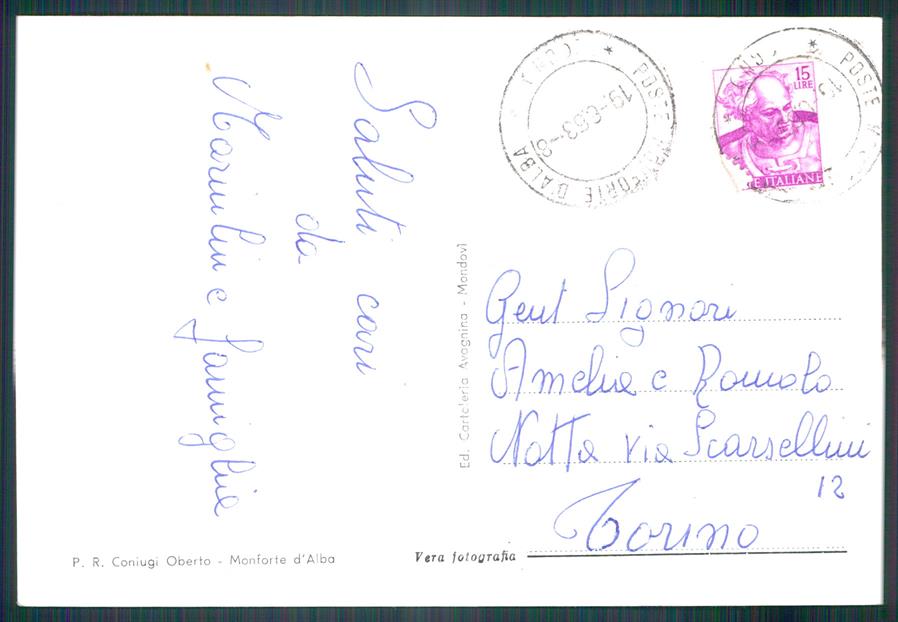 Saluti cari
da
e famiglia
Gent Signori
Amelia e Romolo
Notta via Scarsellini
12
Torino
Ed. Cartoleria Avagnina - Mondovì
P. R. Coniugi Oberto - Monforte d'Alba
Vera fotografia
15
LIRE
E ITALIANE
POSTE MONFORTE D'ALBA
19-6-63-8
POSTE